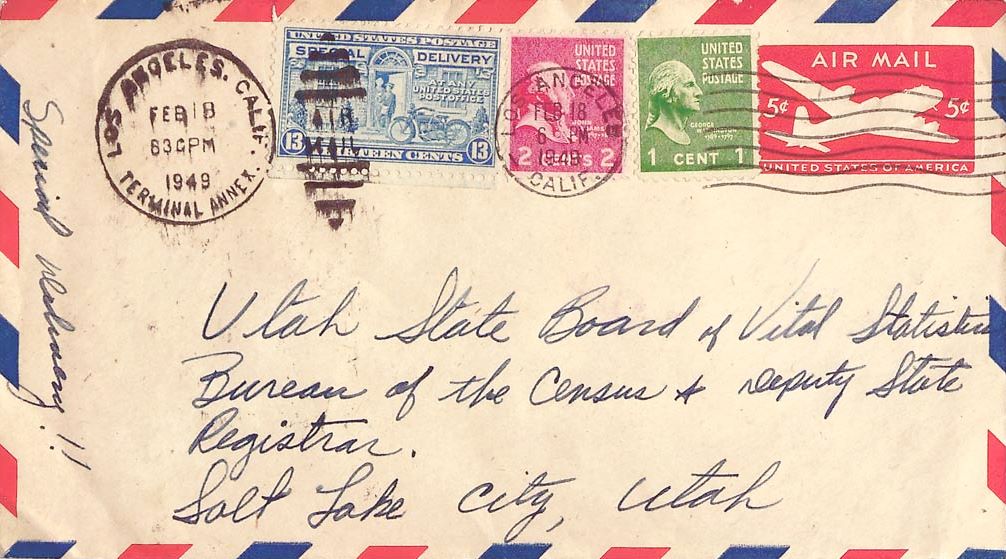 LOS ANGELES. CALIF.
FEB 18
630PM
1949
TERMINAL ANNEX.
UNITED STATES POSTAGE
SPECIAL DELIVERY
AT ANY
UNITED STATES
POST OFFICE
13 THIRTEEN CENTS 13
AIR
MAIL
UNITED
STATES
POSTAGE
JOHN
ADAMS
2 CENTS 2
LOS ANGELES
FEB 18
6 PM
1949
CALIF.
UNITED
STATES
POSTAGE
GEORGE
1 CENT 1
AIR MAIL
5¢ 5¢
UNITED STATES OF AMERICA
Special Delivery!!
Utah State Board of Vital Statistics
Bureau of the Census & Deputy State
Registrar.
Salt Lake City, Utah